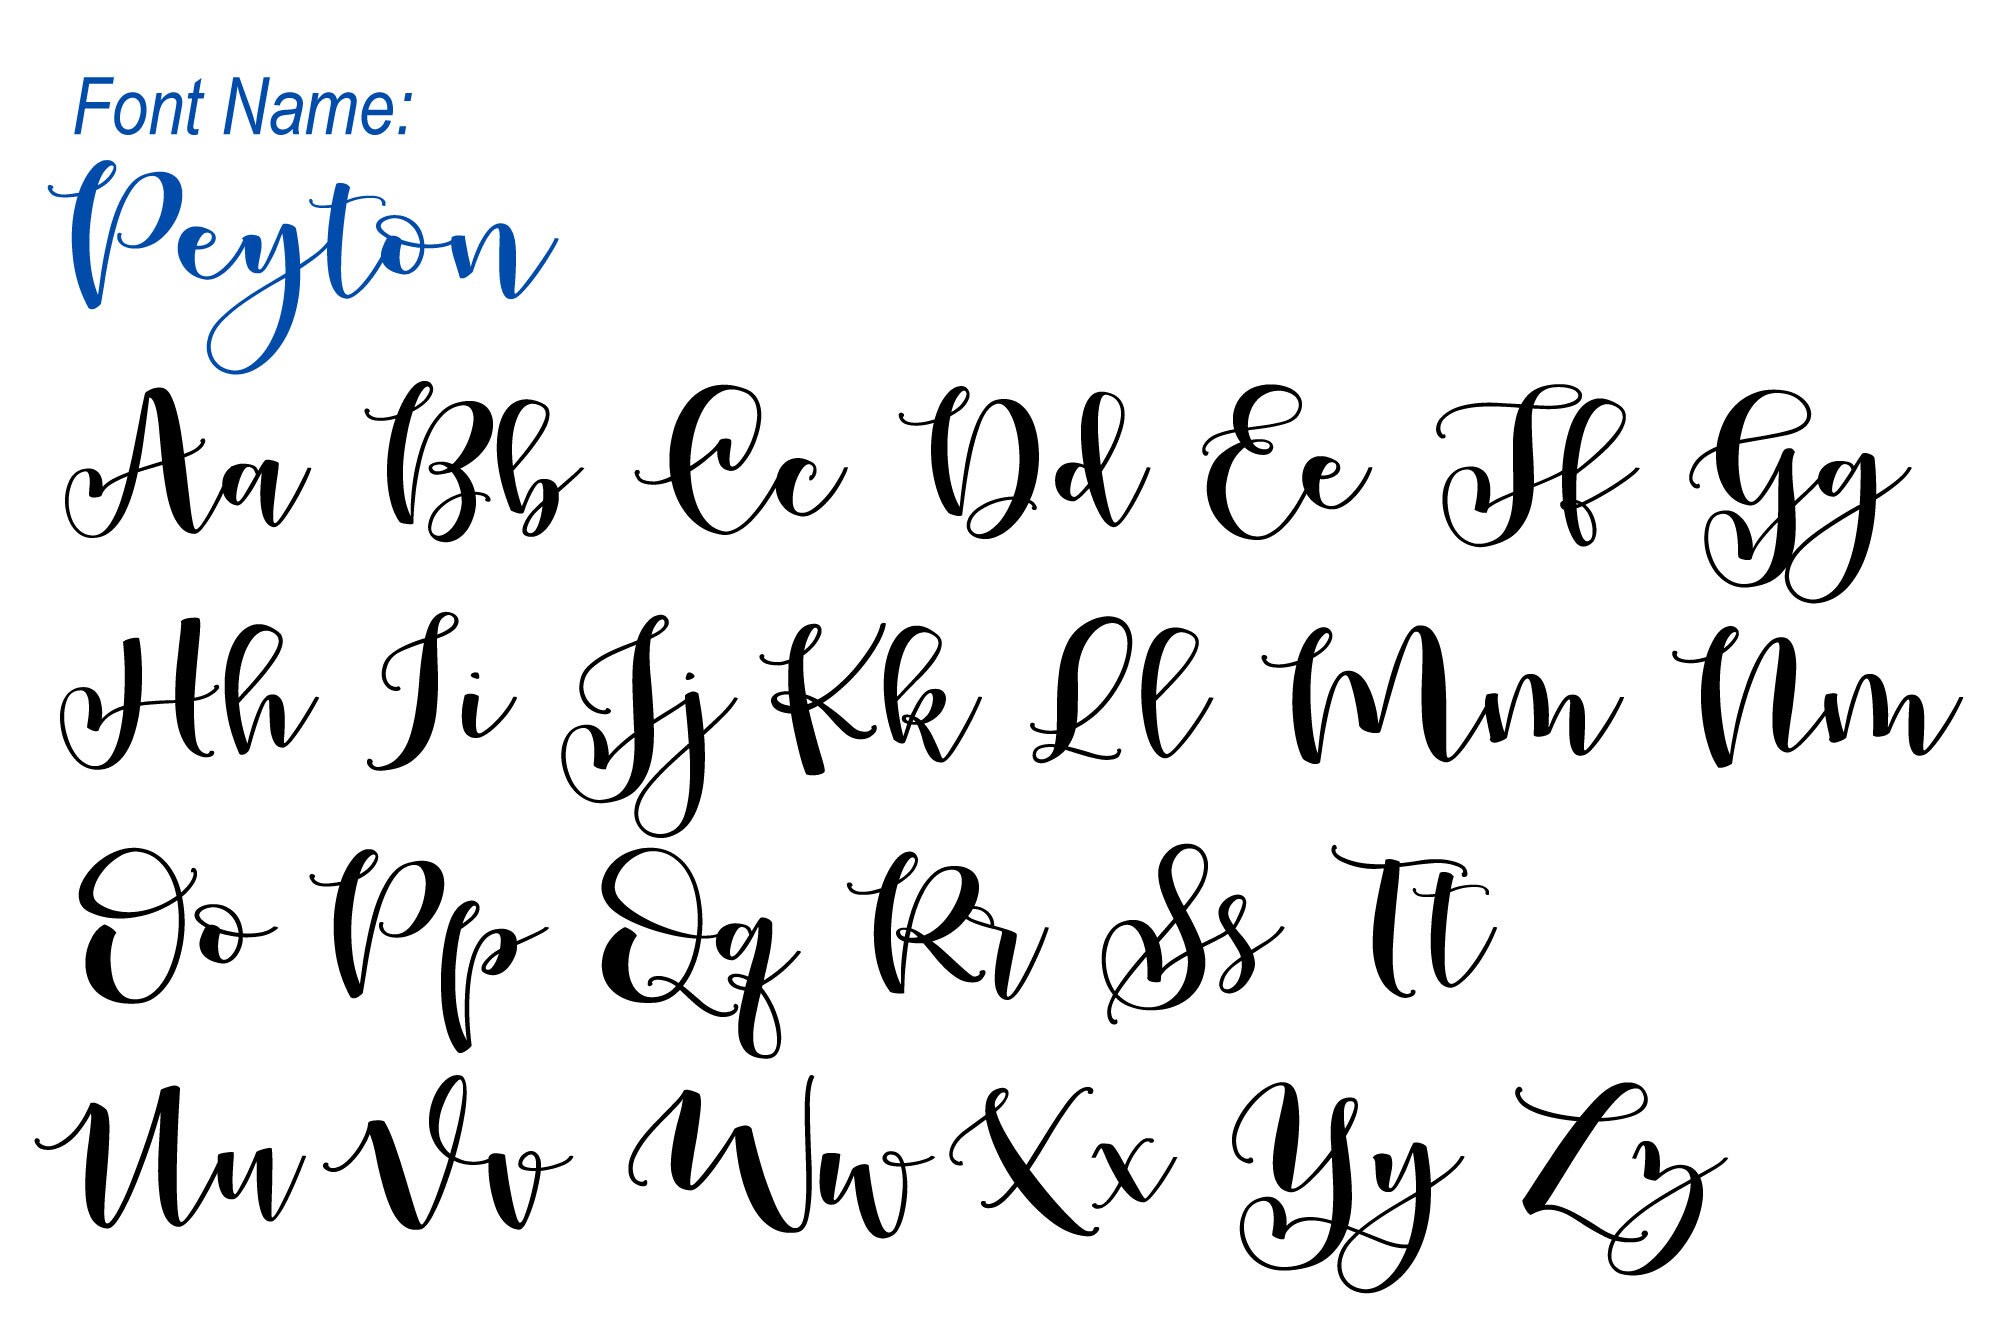 Font Name:
Peyton
Aa Bb Cc Dd Ee Ff Gg
Hh Ii Jj Kk Ll Mm Nm
Oo Pp Qq Rr Ss Tt
Uu Vv Ww Xx Yy Zz